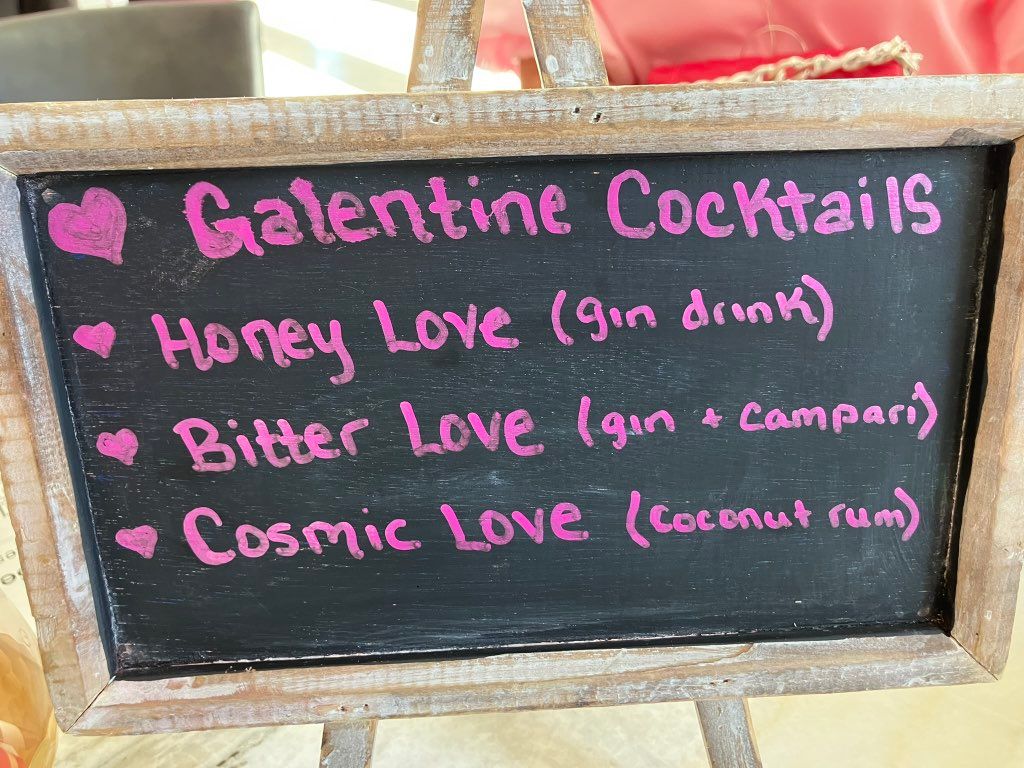 Galentine Cocktails
Honey Love (gin drink)
Bitter Love (gin + Campari)
Cosmic Love (coconut rum)